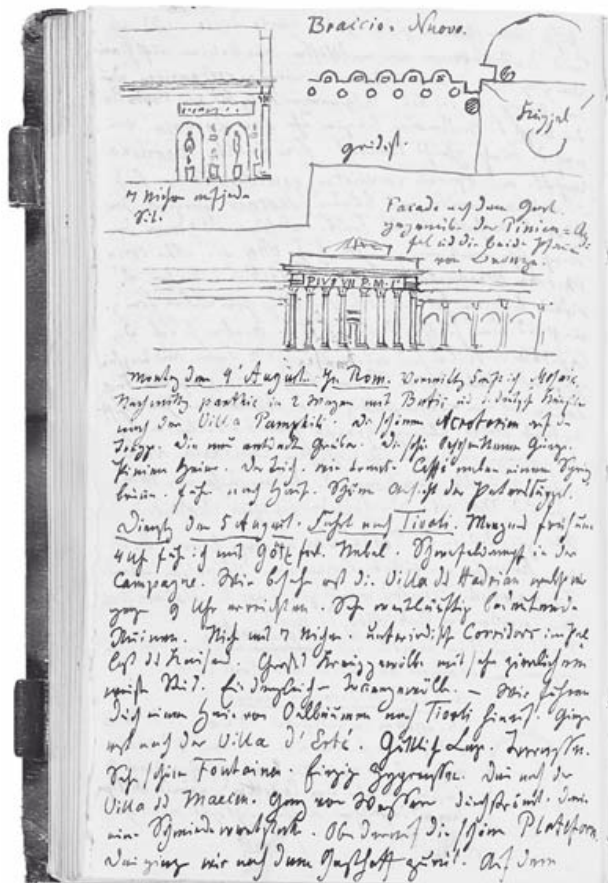 Braccio Nuovo.
Kuppel
grundriß.
7 Nischen auf jeder
Seite.
Facade auf dem Garten
gegenüber der Pinien=
und die beiden Pfauen
von Bronze.
PIVS VII P.M.
den 4 August. In Rom. Mosaic.
Nachmittag partie in 2 Wagen mit
nach der Villa Pamphili. Die schönen Acroterien auf der
Treppe. Die neu entdeckten Gräber. Die schönen
Pinien Haine. Der Teich. Caffé unter einem
fahrt nach Haus. Schöne Ansicht der Peterskuppel.
Dienstag den 5 August. Fahrt nach Tivoli. Morgens früh um
4 Uhr fuhr ich mit Götz fort. Nebel. Schwefeldampf in der
Campagne. Wir besahen erst die Villa des Hadrian welche wir
gegen 9 Uhr erreichten. Sehr weitläuftig bedeutende
Ruinen. mit 7 Nischen. unterirdische Corridors im
des Kaisers. Kreuzgewölbe mit sehr zierlichem
Ein desgleichen Tonnengewölbe. – Wir fuhren
durch einen Hain von Oelbäumen nach Tivoli hinauf. Gingen
erst nach der Villa d'Esté. Göttliche Lage. Terrassen.
Sehr schöne Fontainen. Cypressen. Dann nach der
Villa des Maecen. Ganz von Wasser durchströmt. darin
eine Schmiedewerkstatt. Oben darauf die schöne Plateform.
Dann gingen wir nach dem Gasthoff zurück. Auf dem